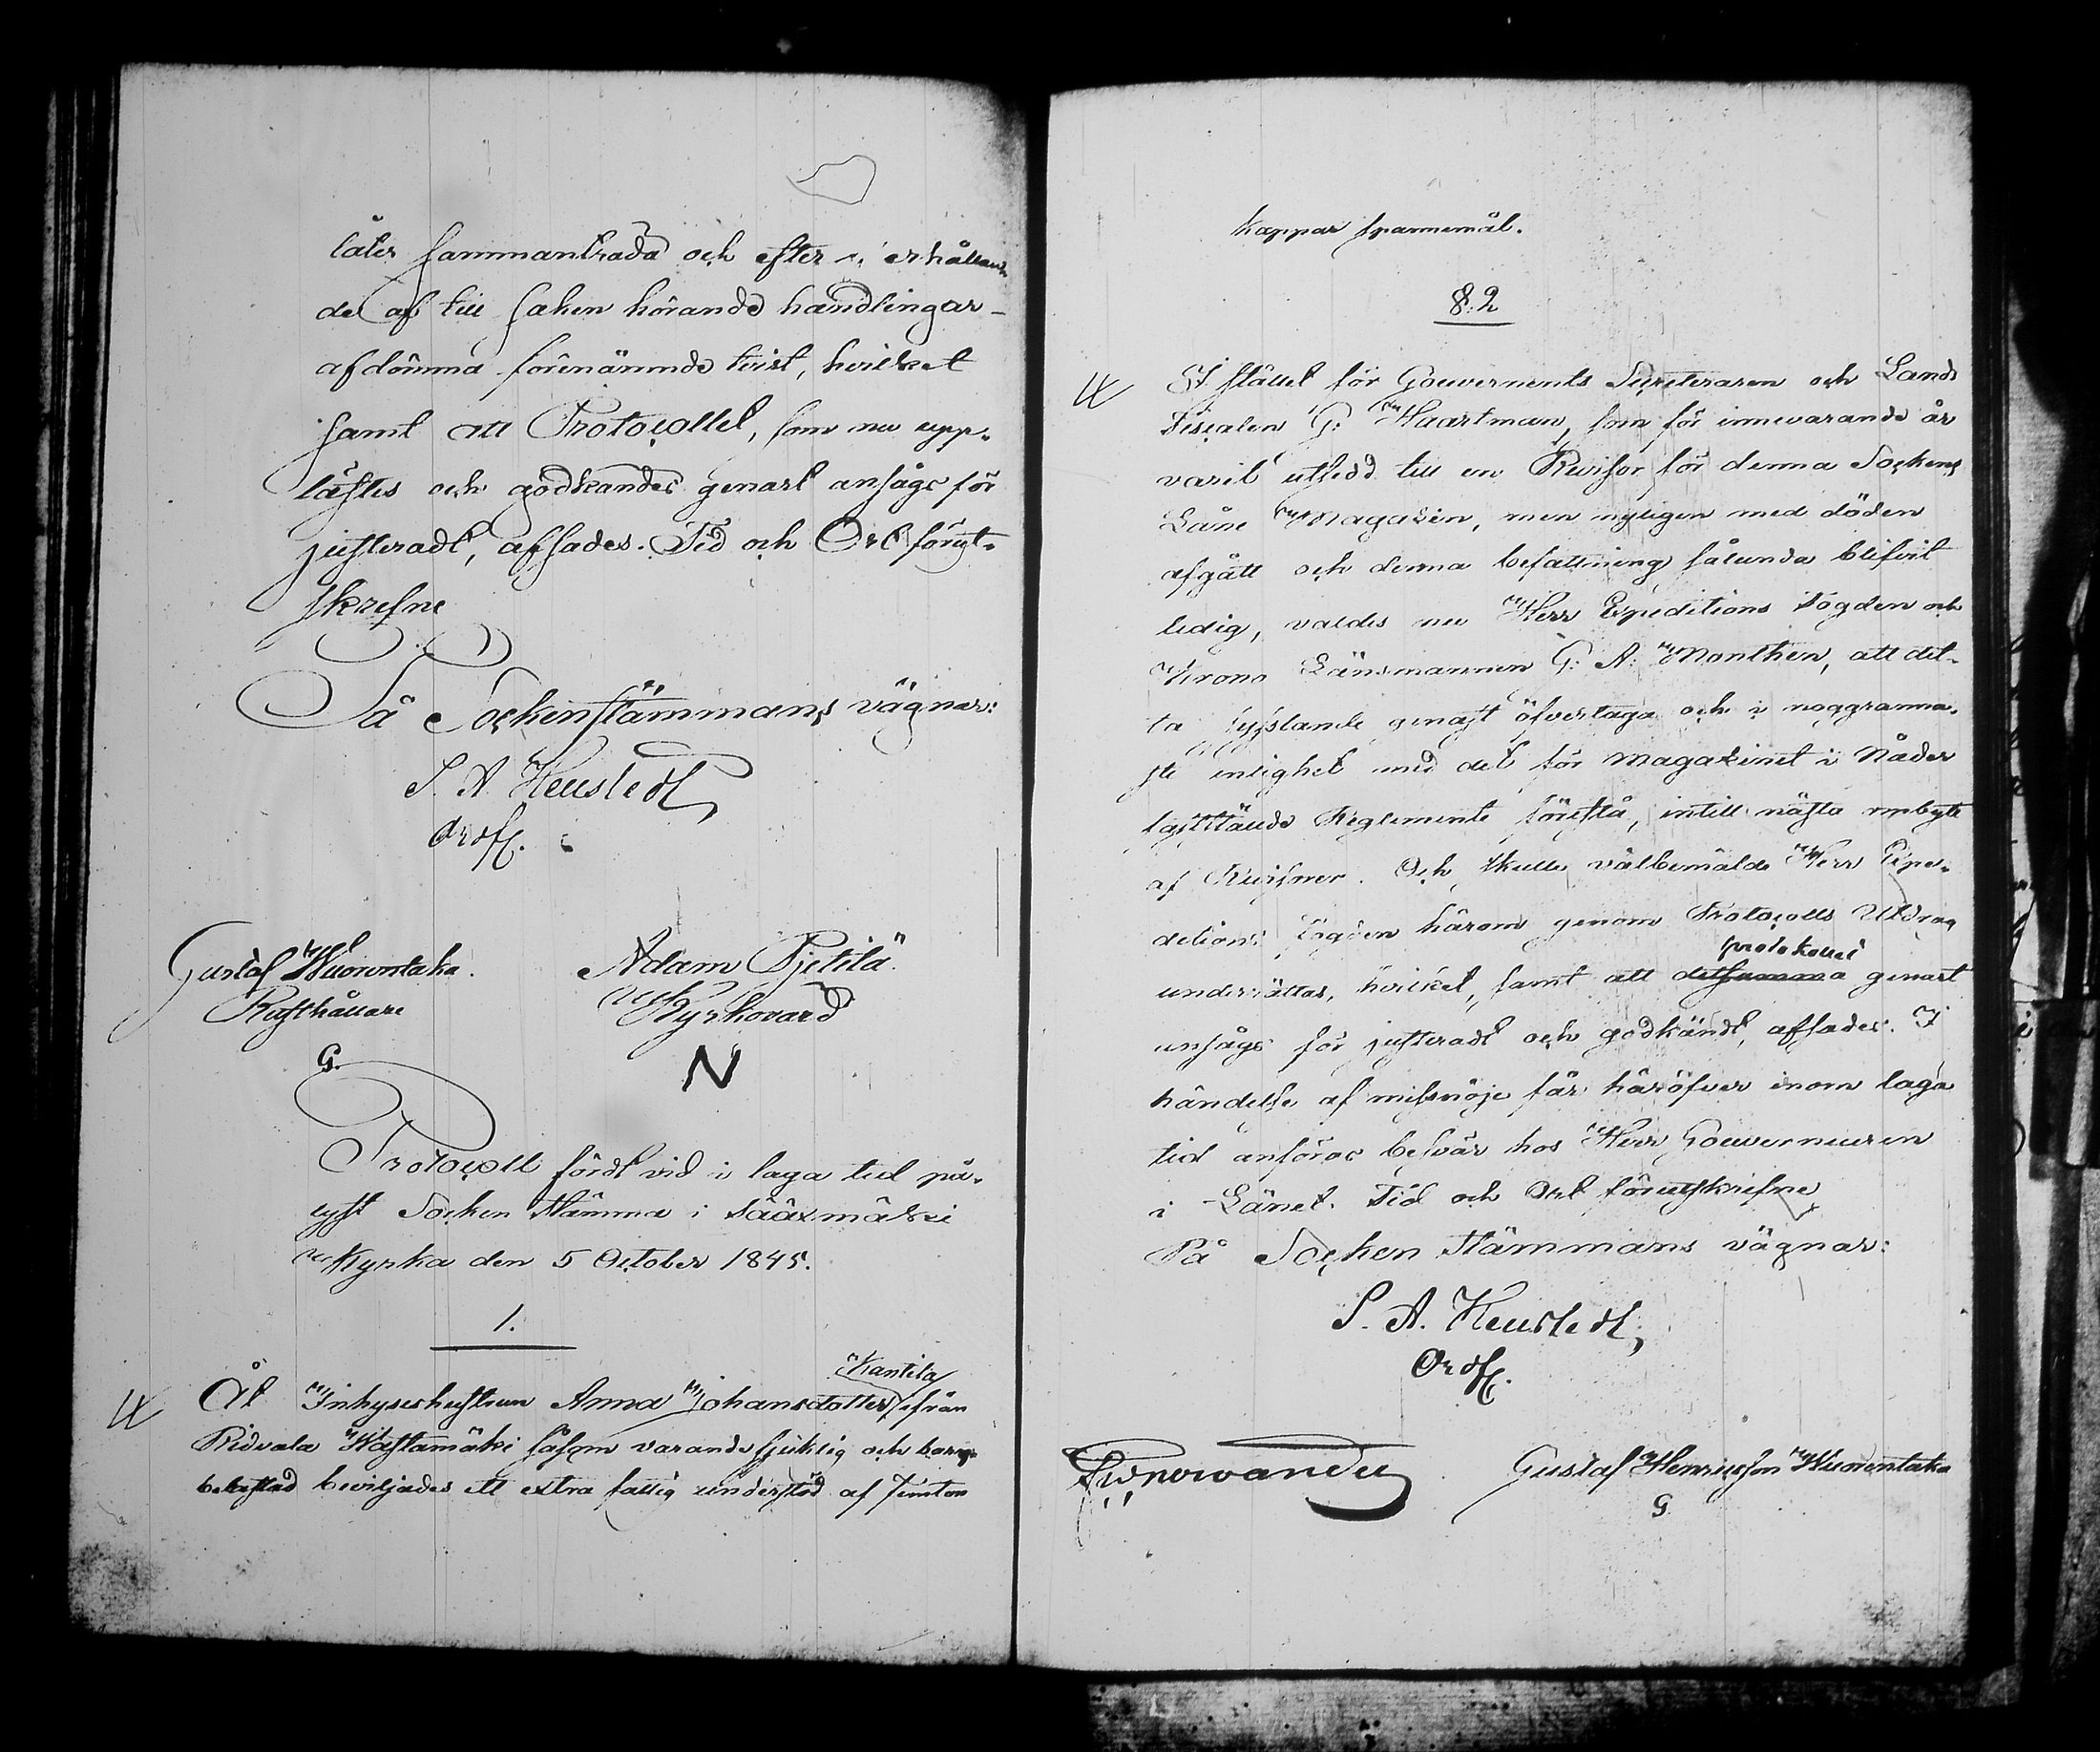 låter sammanträda och efter erhållan
de af till saken hörande handlingar
afdömma förenämnde tvist, hvilket
samt att Protocollet, som nu upp-
lästes och godkändes genast ansågs för
justeradt, afsades. Tid och Ort förut-
skrefne
På Sockenstämmans vägnar:
S. A. Heustedt,
Ordf.
Gustaf Wuorentaka.
Rusthållare
G.
Adam Pjetilä
Kyrkovard
N
Protocoll fördt vid i laga tid på-
lyst Socken Stämma i Sääxmäki
Kyrka den 5 October 1845.
1.
Kantila
Åt Inhyseshustrun Anna Johansdotter ifrån
Ridvala Hastamäki såsom varande sjuklig och barn-
belastad beviljades ett extra fattig understöd af femton
kappar spannemål.
§. 2
I stället för Gouvernements Secreteraren och Lands
Fiscalen G. Haartman, som för innevarande år
varit utsedd till en Revisor för denna Sockens
Låne Magazin, men nyligen med döden
afgått och denna befattning sålunda blifvit
ledig, valdes nu Herr Expeditions Fogden och
Krono Länsmannen G. A. Monthén, att det-
ta sysslande genast öfvertaga och i noggranna-
ste enlighet med det för Magazinet i Nåder
fastställde Reglemente förestå, intill nästa ombyte
af Revisorer. Och skulle välbemälde Herr Expe-
ditions Fogden härom genom Protocolls Utdrag
protokollet
underrättas, hvilket, samt att detsamma genast
ansågs för justeradt och godkändt, afsades. I
händelse af missnöje får häröfver inom laga
tid anföras besvär hos Herr Gouverneuren
i Länet. Tid och Ort förutskrifne
På Socken Stämmans vägnar:
S. A. Heustedt,
Ordf.
Gustaf Henricsson Wuorentaka
G